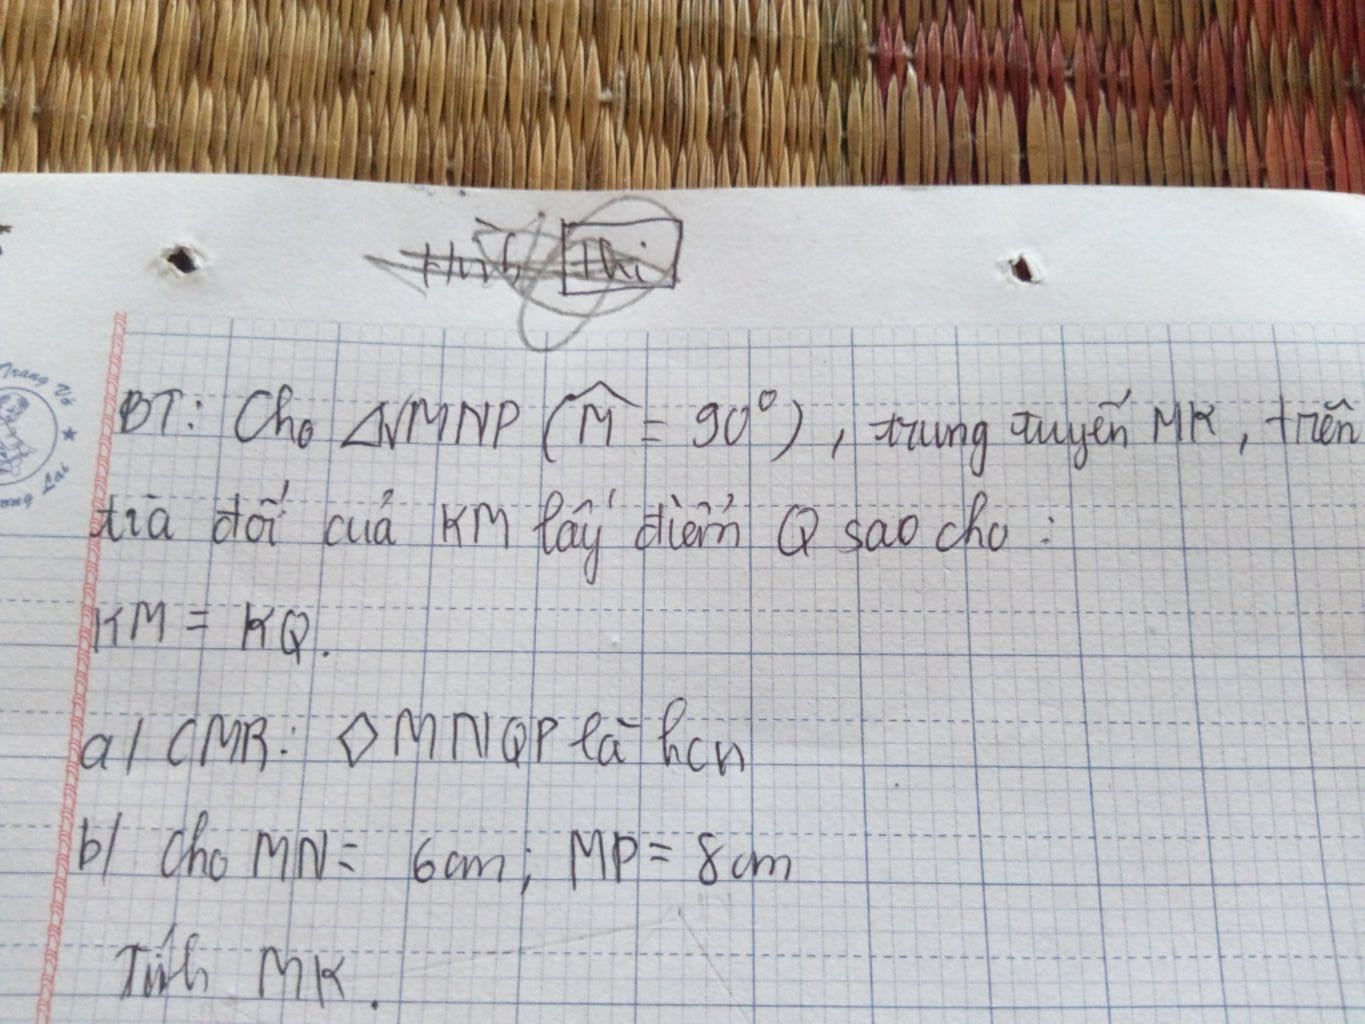 thi
BT: Cho △vMNP (M̂ = 90°), trung tuyến MK, trên
tia đối của KM lấy điểm Q sao cho:
KM = KQ.
a/ CMR: ◇MNQP là hcn
b/ Cho MN = 6cm; MP = 8cm
Tính MK.